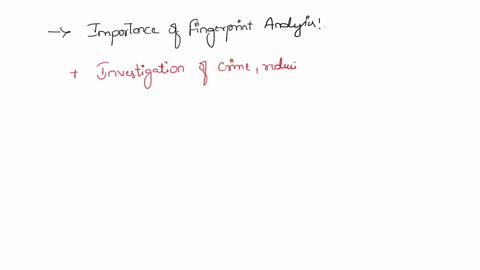 → Importance of Fingerprint Analysis!
+ Investigation of crime,